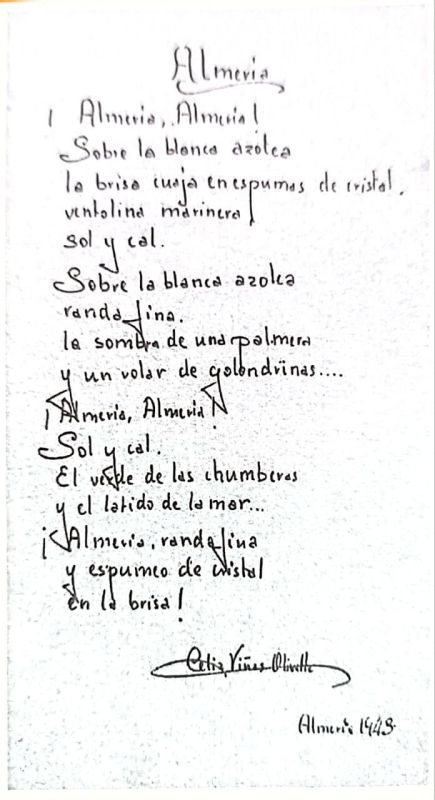 Almería
¡ Almería, Almería!
Sobre la blanca azotea
la brisa cuaja en espumas de cristal.
ventolina marinera,
sol y cal.
Sobre la blanca azotea
randa fina.
la sombra de una palmera
y un volar de golondrinas....
¡Almería, Almería!
Sol y cal.
El verde de las chumberas
y el latido de la mar...
¡Almería, randa fina
y espumeo de cristal
en la brisa!
Celia Viñas Olivella
Almería 1948